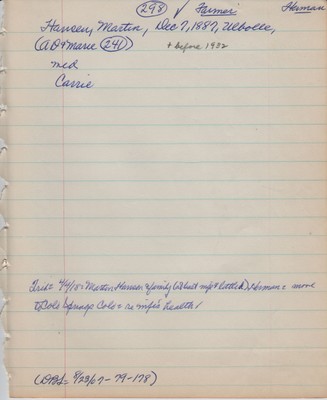 298 ✓ Farmer Herman
Hansen, Martin, Dec 7, 1887, Ulbolle,
(AD & Marie 241) + before 1932
md
Carrie
4/4/10: Martin Hansen & family (w & but) Herman = move
to Colo Springs Colo = re wife's health ✓
8/23/67 - 79 - 178)